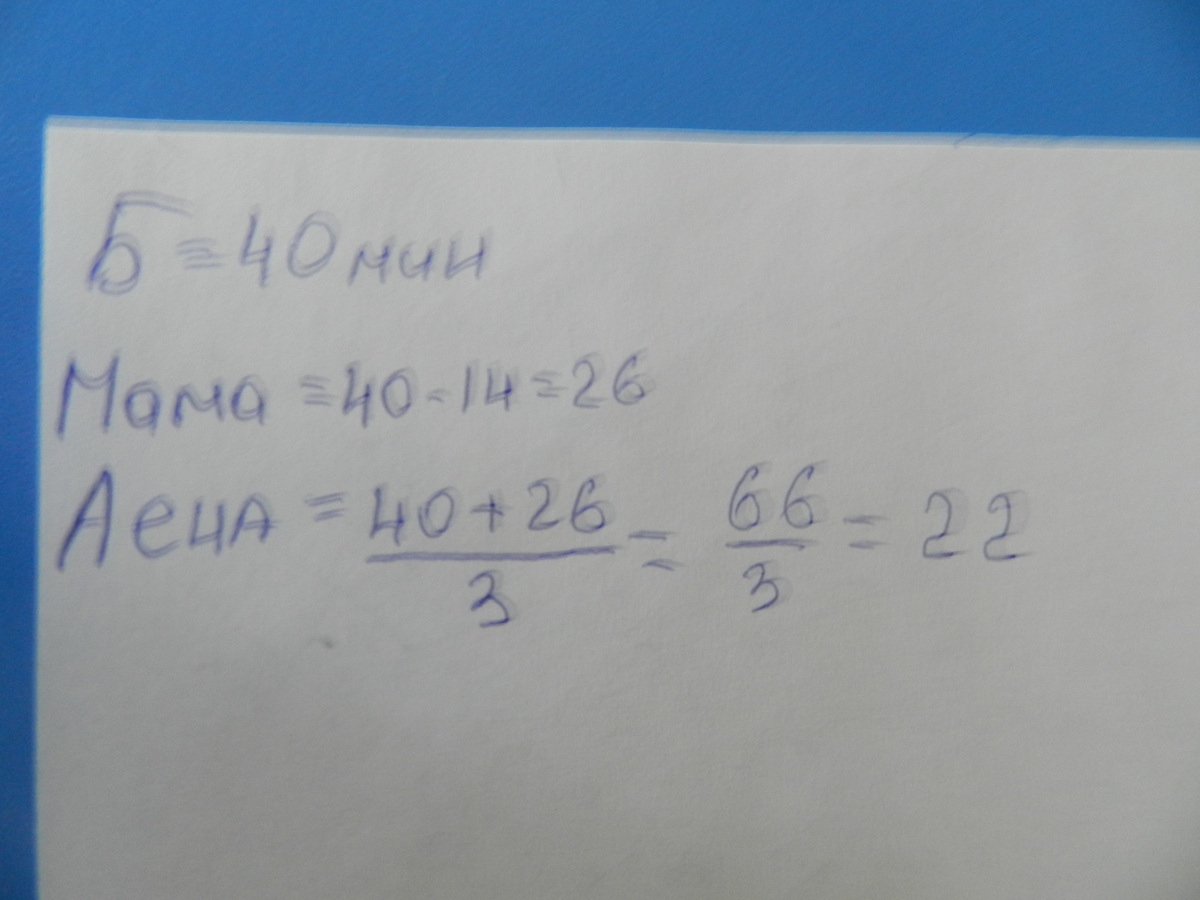 Б = 40 мин
Мама = 40 - 14 = 26
Аеца = 40 + 26 / 3 = 66 / 3 = 22